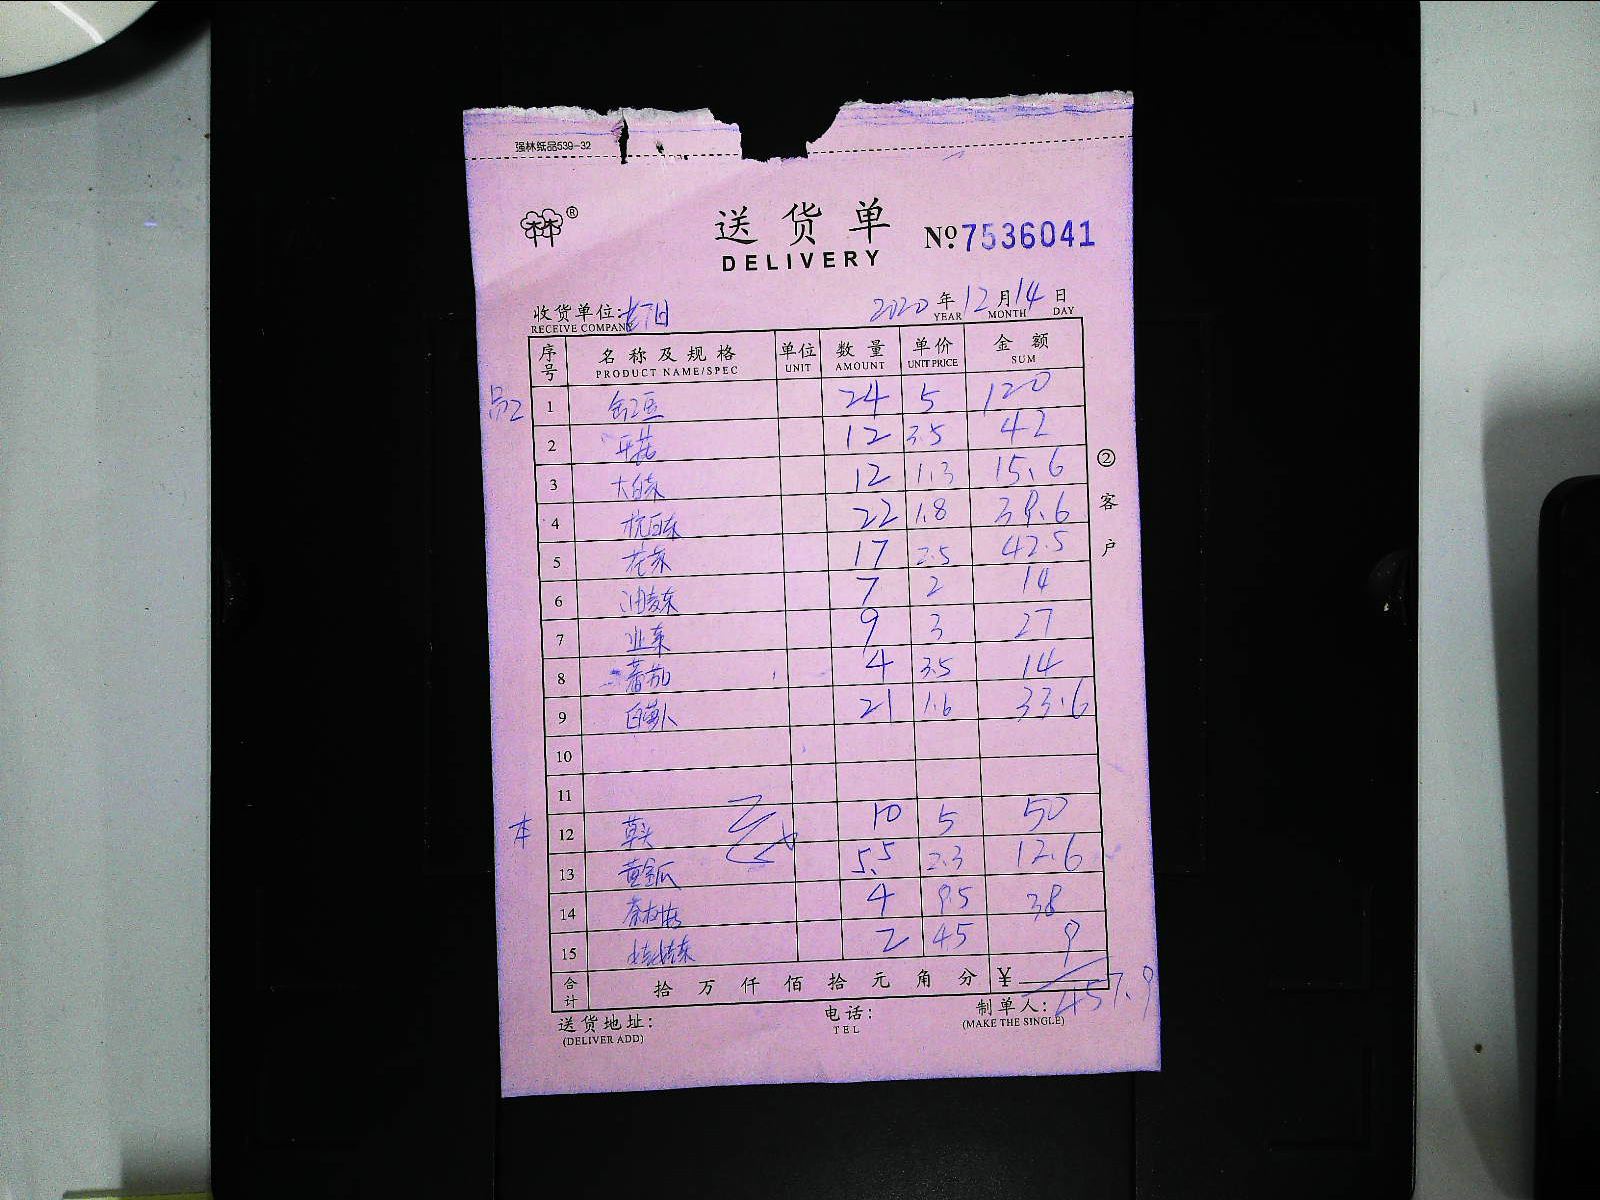 强林纸品539-32
林林®
送货单
DELIVERY
№7536041
收货单位:
RECEIVE COMPANY
2020年12月14日
YEAR MONTH DAY
序号 名称及规格 单位 数量 单价 金额
PRODUCT NAME/SPEC UNIT AMOUNT UNIT PRICE SUM
1 24 5 120
2 平菇 12 3.5 42
3 大白菜 12 1.3 15.6
4 杭白菜 22 1.8 39.6
5 花菜 17 2.5 42.5
6 油麦菜 7 2 14
7 9 3 27
8 番茄 4 3.5 14
9 白萝卜 21 1.6 33.6
10
11
本 12 草头 10 5 50
13 黄金瓜 5.5 2.3 12.6
14 茶树菇 4 9.5 38
15 娃娃菜 2 45 9
合计 拾万仟佰拾元角分 ¥
457.9
②客户
送货地址:
(DELIVER ADD)
电话:
TEL
制单人:
(MAKE THE SINGLE)